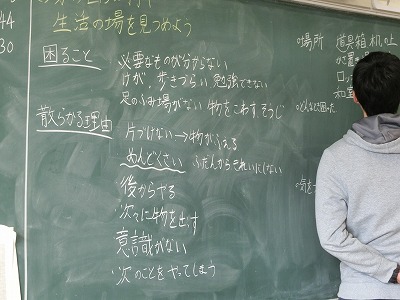 生活の場を見つめよう
44
30
困ること
必要なものが分からない
けが 歩きづらい 勉強できない
足のふみ場がない 物をこわす そうじ
散らかる理由
片づけない→物がふえる
めんどくさい ふだんからきれいにしない
後からやる
・次々に物を出す
意識がない
・次のことをやってしまう
場所 道具箱 机の上